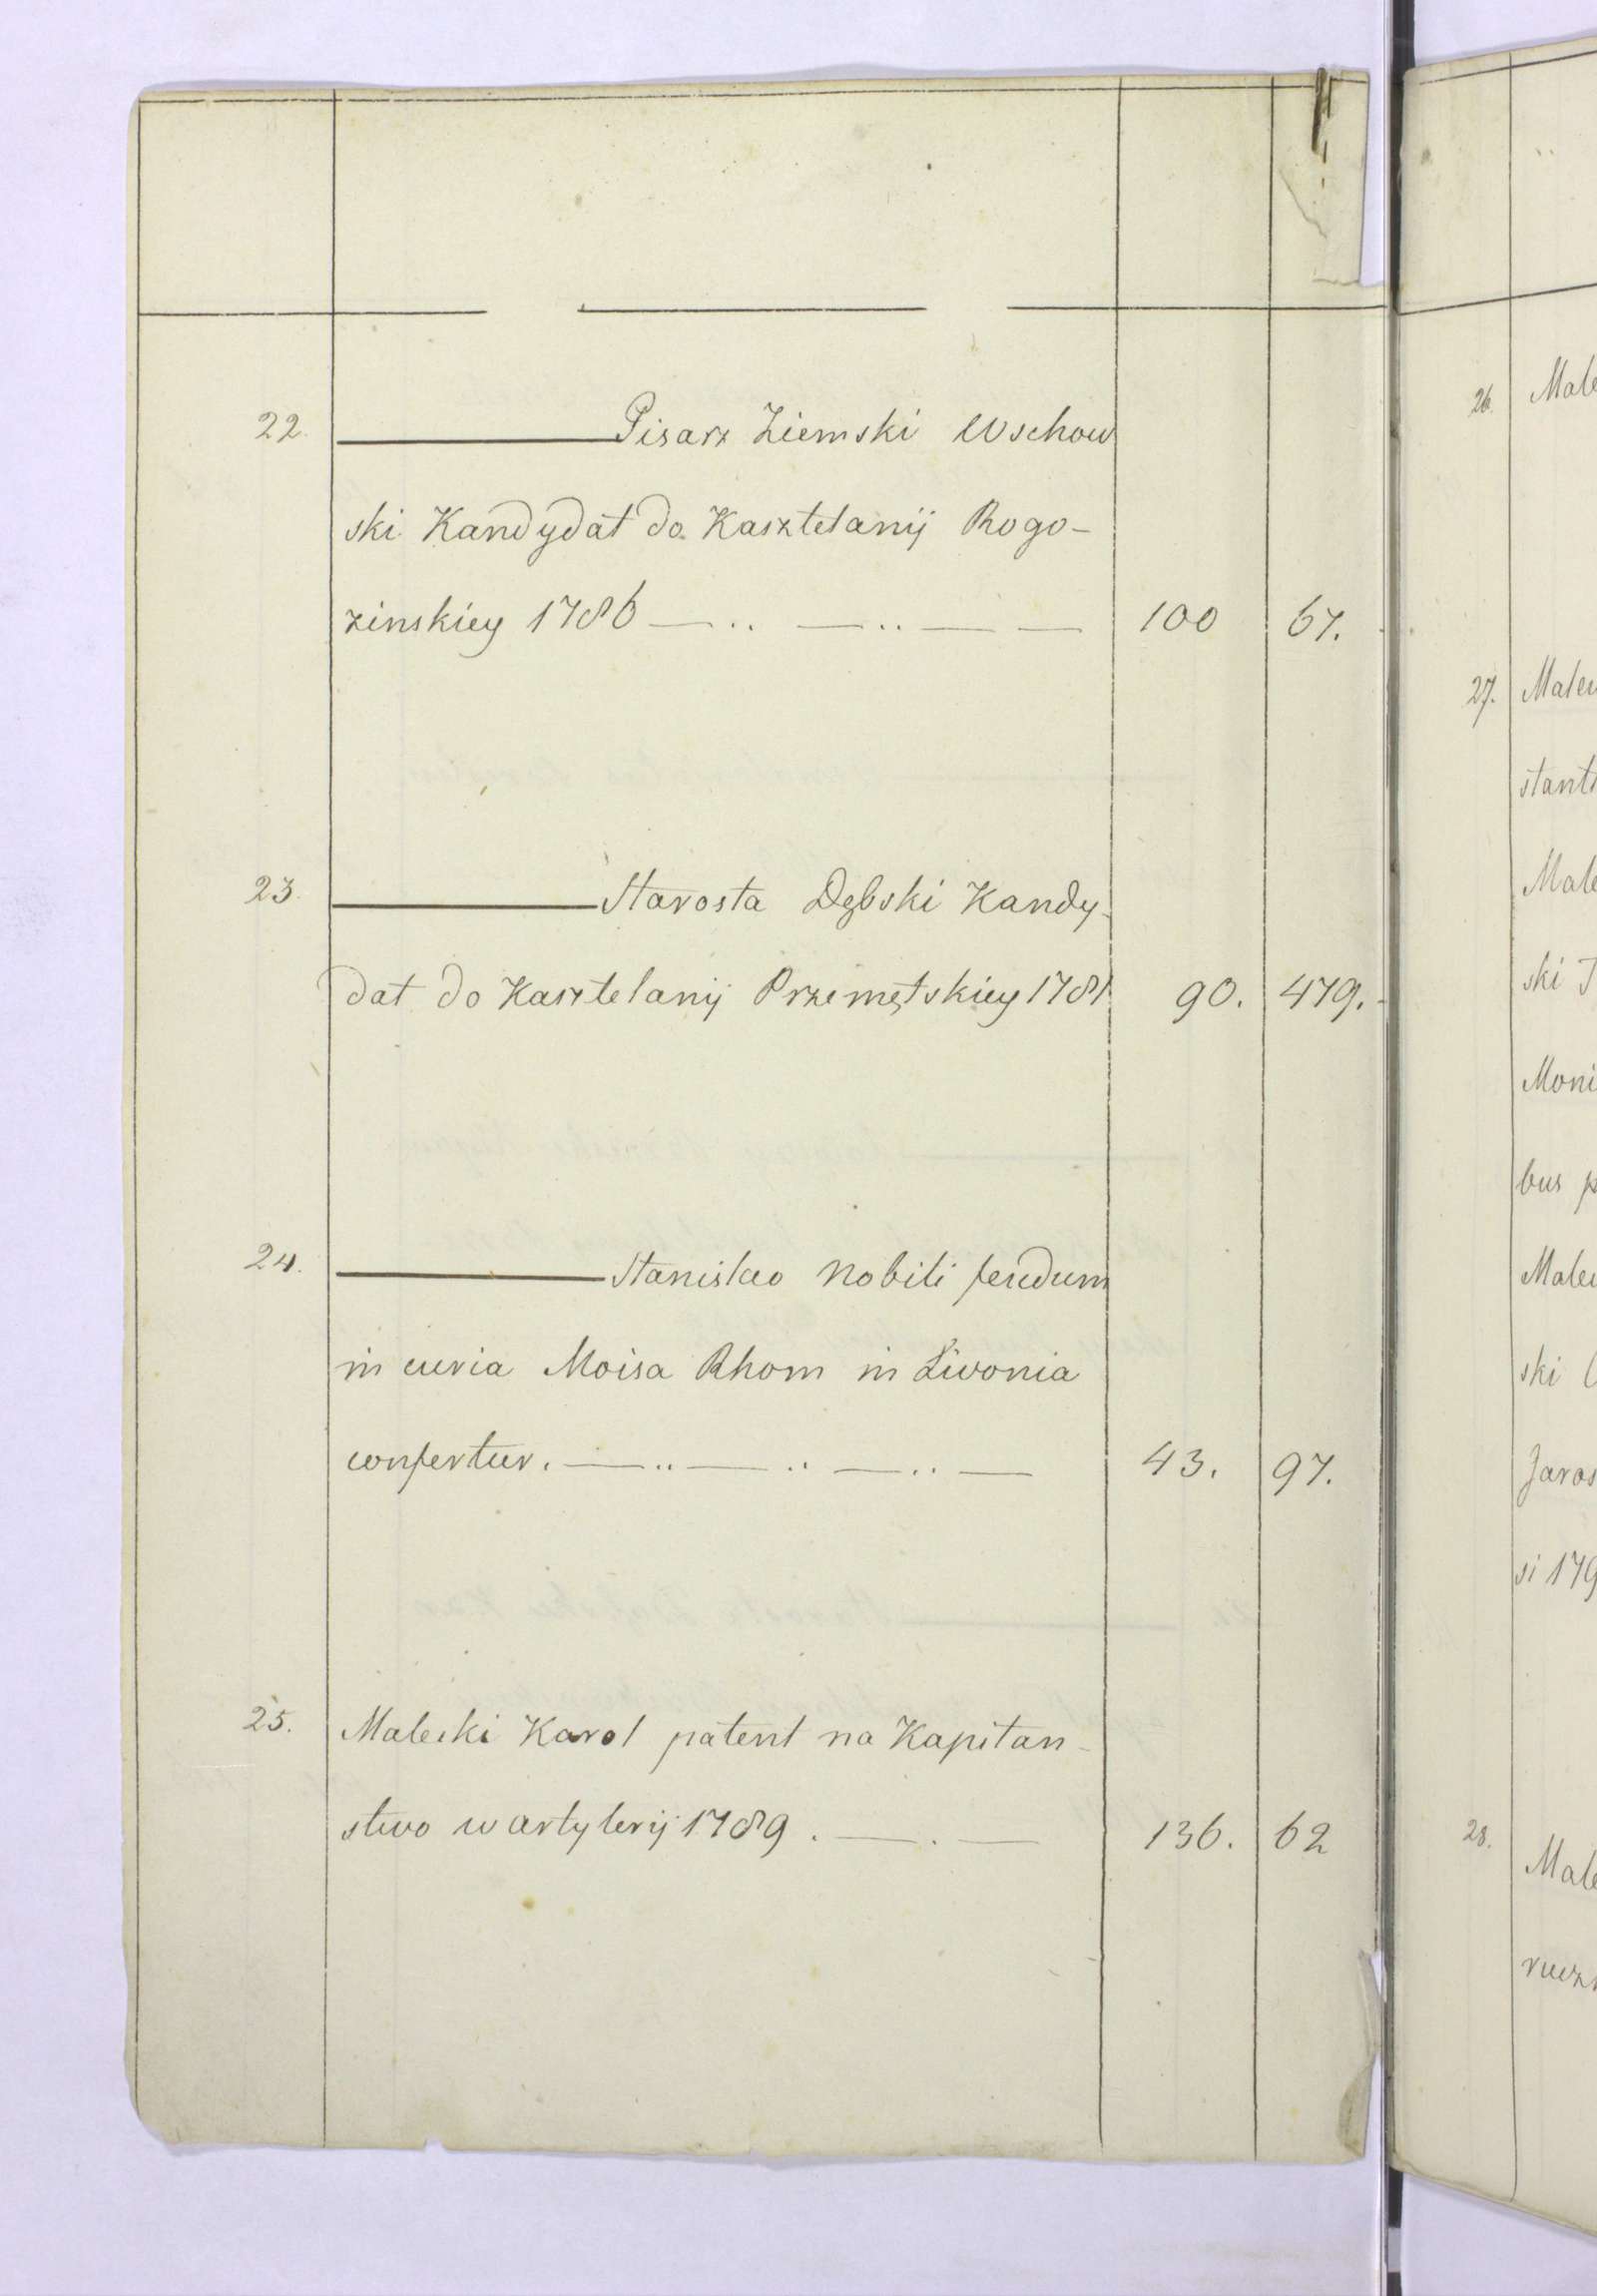 22. ——— Pisarz Ziemski Wschow
ski Kandydat do Kasztelanij Rogo-
zinskiey 1786 —..—..— — 100 67.
23. ——— Starosta Dębski Kandy-
dat do Kasztelanij Przemętskiey 1781 90. 479.
24. ——— Stanislao Nobili feudum
in curia Moisa Rhom in Livonia
confertur. —..—..—..— 43. 97.
25. Malecki Karol patent na Kapitan-
stwo w artylerij 1789. —.— 136. 62
26. Male
27. Malew
stant
Male
ski J
Moni
bus p
Malew
ski
Jaros
si 179
28. Male
rucz